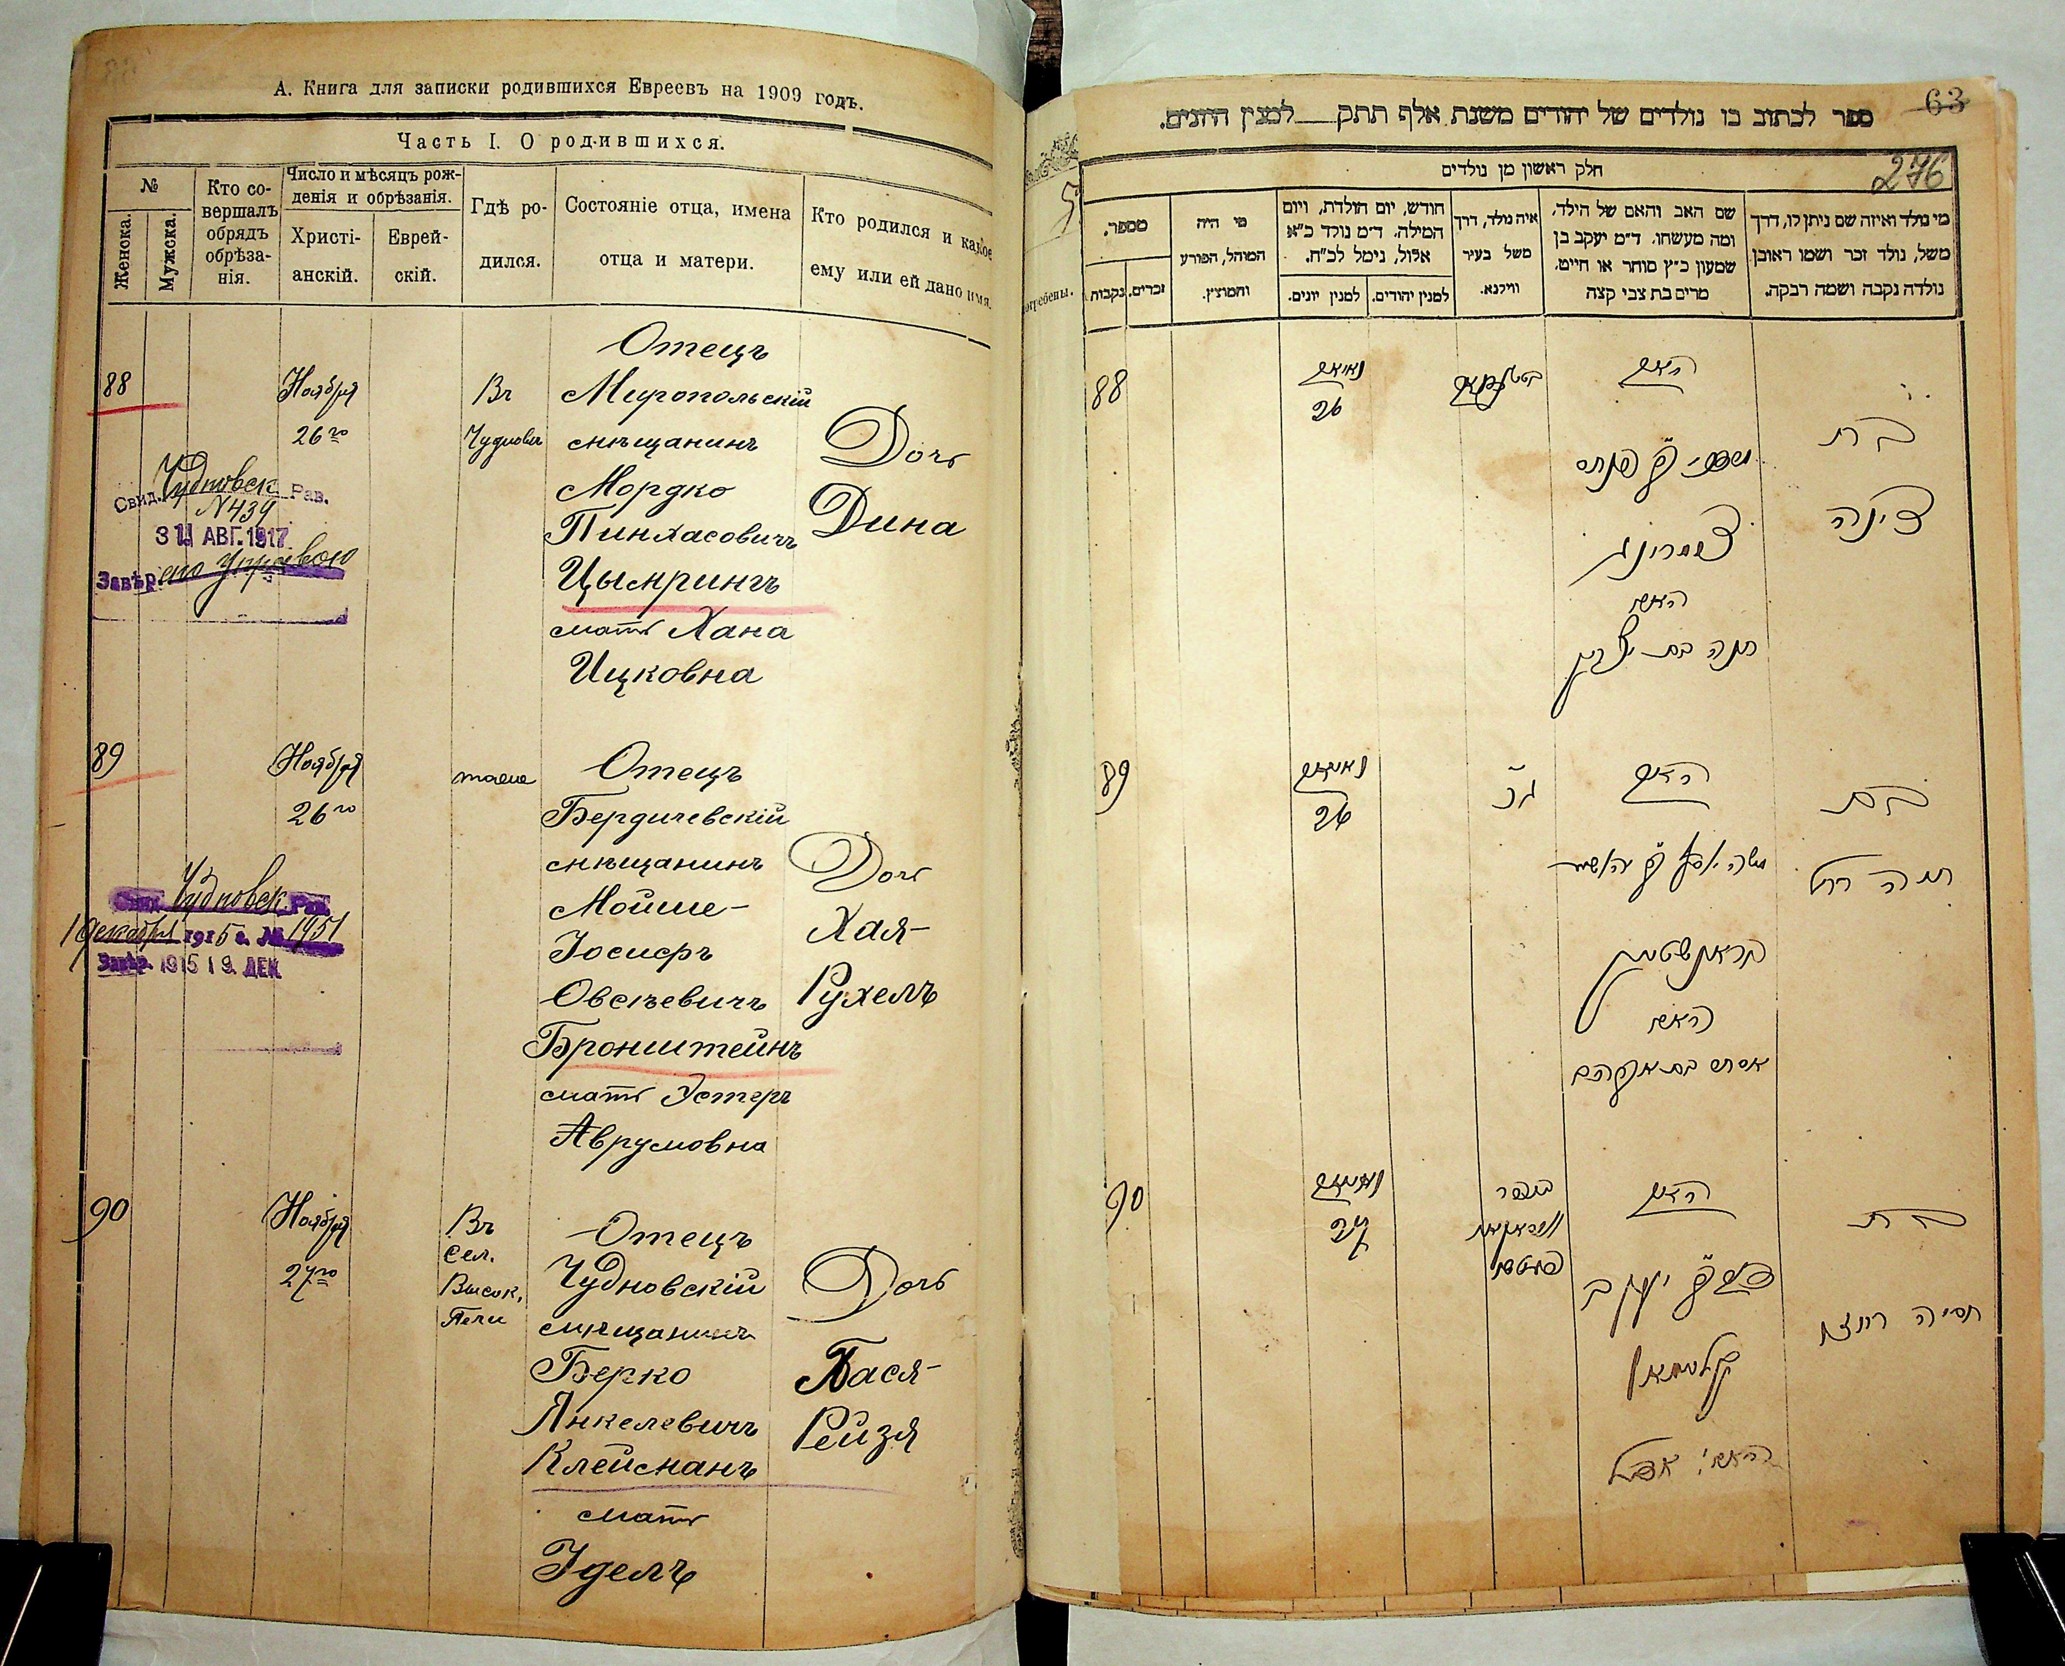 А. Книга для записки родившихся Евреевъ на 1909 годъ.
Часть I. О родившихся.
№
Женска.
Мужска.
Кто со-
вершалъ
обрядъ
обрѣза-
нія.
Число и мѣсяцъ рож-
денія и обрѣзанія.
Христі-
анскій.
Еврей-
скій.
Гдѣ ро-
дился.
Состояніе отца, имена
отца и матери.
Кто родился и какое
ему или ей дано имя.
88
Ноября
26го
Въ
Чудновѣ
Отецъ
Миропольскій
мѣщанинъ
Мордко
Пинхасовичъ
Цымрингъ
мать Хана
Ицковна
Дочь
Дина
Свид. Чудновск Рав.
№ 439
31 АВГ. 1917
Завѣр.
89
Ноября
26го
тоже
Отецъ
Бердичевскій
мѣщанинъ
Мойше-
Іосифъ
Овсѣевичъ
Бронштейнъ
мать Эстеръ
Аврумовна
Дочь
Хая-
Рухелъ
Свид. Чудновск Рав.
19 Декабря 1915 г. № 1951
Завѣр. 1915 19. ДЕК.
90
Ноября
27го
Въ
Сел.
Высок.
Печи
Отецъ
Чудновскій
мѣщанинъ
Берко
Янкелевичъ
Клейманъ
мать
Эделъ
Дочь
Бася-
Рейзя
63
ספר לכתוב בו נולדים של יהודים משנת אלף תתק למנין היונים.
276
חלק ראשון מן נולדים
מספר.
נקבות
זכרים.
מי היה
המוהל, הפורע
והמוצץ.
חודש, יום הולדת, ויום
המילה. ד״מ נולד כ״א
אלול, נימל לכ״ח.
למנין יונים.
למנין יהודים.
איה נולד, דרך
משל בעיר
ווילנא.
שם האב והאם של הילד,
ומה מעשהו. ד״מ יעקב בן
שמעון כ״ץ סוחר או חייט,
מרים בת צבי קצה
מי נולד ואיזה שם ניתן לו, דרך
משל, נולד זכר ושמו ראובן
נולדה נקבה ושמה רבקה.
88
26
האב
צימרינג
האם
חנה בת יצחק
בת
דינה
89
26
האב
בראנשטיין
האם
אסתר בת אברהם
בת
חיה רחל
90
27
האב
קליימאן
האם
בת